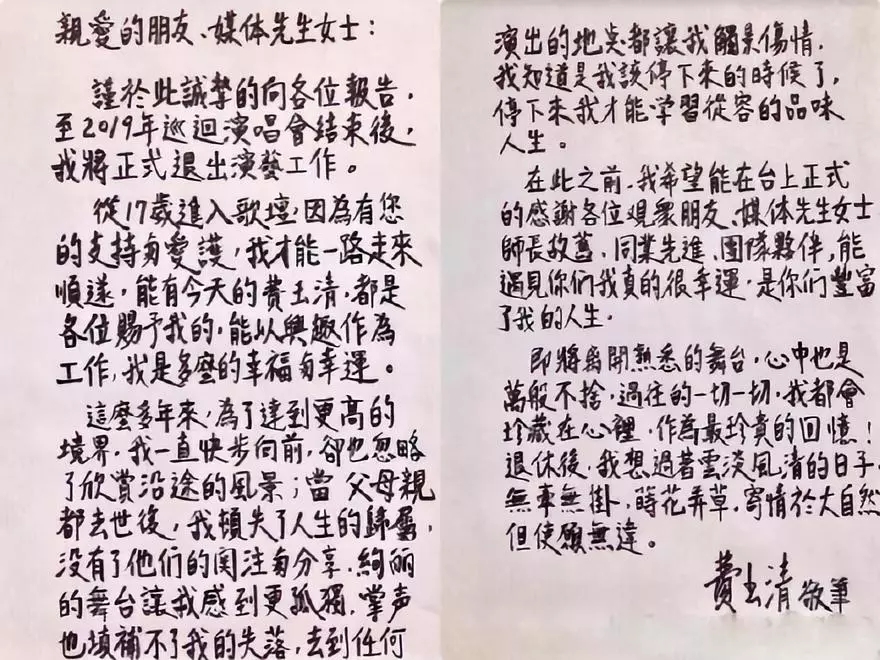 親愛的朋友、媒体先生女士：
謹於此誠摯的向各位報告，
至2019年巡迴演唱會結束後，
我將正式退出演藝工作。
從17歲進入歌壇，因為有您
的支持与愛護，我才能一路走來
順遂，能有今天的費玉清，都是
各位賜予我的，能以興趣作為
工作，我是多麼的幸福与幸運。
這麼多年來，為了達到更高的
境界，我一直快步向前，卻也忽略
了欣賞沿途的風景；當父母親
都去世後，我頓失了人生的歸屬，
没有了他們的関注与分享，絢麗
的舞台讓我感到更孤獨，掌声
也填補不了我的失落，去到任何
演出的地点都讓我觸景傷情，
我知道是我該停下來的時候了，
停下來我才能学習從容的品味
人生。
在此之前，我希望能在台上正式
的感謝各位观眾朋友、媒体先生女士
師長故舊、同業先進、團隊夥伴，能
遇見你們我真的很幸運，是你們豐富
了我的人生。
即將离開熟悉的舞台，心中也是
萬般不捨，過往的一切一切，我都會
珍藏在心裡，作為最珍貴的回憶！
退休後，我想過著雲淡風清的日子，
無牽無掛，蒔花弄草，寄情於大自然
但使願無違。
費玉清 敬筆